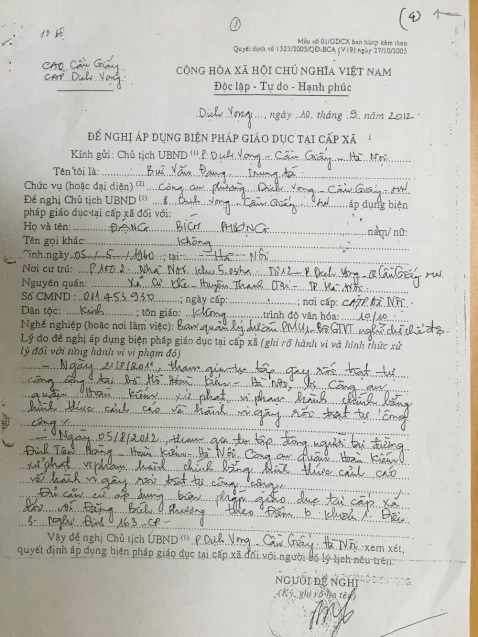 ①
(4)
10 bộ
Mẫu số 01/GDCX ban hành kèm theo
Quyết định số 1522/2005/QĐ-BCA (V19) ngày 27/10/2005
CAQ. Cầu Giấy
CAP. Dịch Vọng
CỘNG HÒA XÃ HỘI CHỦ NGHĨA VIỆT NAM
Độc lập - Tự do - Hạnh phúc
Dịch Vọng, ngày 10 tháng 9 năm 2012
ĐỀ NGHỊ ÁP DỤNG BIỆN PHÁP GIÁO DỤC TẠI CẤP XÃ
Kính gửi: Chủ tịch UBND (1) P. Dịch Vọng - Cầu Giấy - Hà Nội
Tên tôi là: Bùi Văn Trung tá
Chức vụ (hoặc đại diện) (2) Công an phường Dịch Vọng - Cầu Giấy - HN
Đề nghị Chủ tịch UBND (1) P. Dịch Vọng - Cầu Giấy - HN áp dụng biện
pháp giáo dục tại cấp xã đối với:
Họ và tên: ĐẶNG BÍCH PHƯỢNG nam/ nữ:
Tên gọi khác: Không
Sinh ngày 05 / 5 / 1960 ; tại: Hà Nội
Nơi cư trú: P100.2 Nhà N01 khu 5,03ha Tổ 12 - P. Dịch Vọng - Q Cầu Giấy HN
Nguyên quán: Xã Cự Khê - Huyện Thanh Oai - TP. Hà Nội
Số CMND: 011453950 ngày cấp: nơi cấp: CATP Hà Nội
Dân tộc: Kinh ; tôn giáo: Không trình độ văn hóa: 10/10
Nghề nghiệp (hoặc nơi làm việc): Ban quản lý dự án PMU1 - Bộ GTVT nghỉ chế độ
Lý do đề nghị áp dụng biện pháp giáo dục tại cấp xã (ghi rõ hành vi và hình thức xử
lý đối với từng hành vi vi phạm đó)
- Ngày 21/8/2011, tham gia tụ tập gây rối trật tự
công cộng tại bờ Hồ Hoàn Kiếm - Hà Nội, bị Công an
quận Hoàn Kiếm xử phạt vi phạm hành chính bằng
hình thức cảnh cáo về hành vi gây rối trật tự công
cộng.
- Ngày 05/8/2012, tham gia tụ tập đông người tại đường
Đinh Tiên Hoàng - Hoàn Kiếm - Hà Nội. Công an quận Hoàn Kiếm
xử phạt vi phạm hành chính bằng hình thức cảnh cáo
về hành vi gây rối trật tự công cộng.
Đủ căn cứ áp dụng biện pháp giáo dục tại cấp xã
đối với Đặng Bích Phượng theo Điểm b khoản 1 Điều
3 - Nghị Định 163 - CP -
Vậy đề nghị Chủ tịch UBND (1) P. Dịch Vọng - Cầu Giấy - Hà Nội xem xét,
quyết định áp dụng biện pháp giáo dục tại cấp xã đối với người có lý lịch nêu trên.
NGƯỜI ĐỀ NGHỊ
(Ký, ghi rõ họ tên)